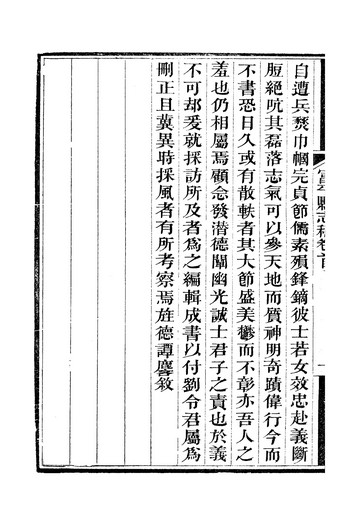 自遭兵燹巾幗完貞節儒素殞鋒鏑彼士若女效忠赴義斷
脰絕吭其磊落志氣可以參天地而質神明奇蹟偉行今而
不書恐日久或有散軼者其大節盛美鬱而不彰亦吾人之
羞也仍相屬焉顧念發潛德闡幽光誠士君子之責也於義
不可却爰就採訪所及者為之編輯成書以付劉令君屬為
刪正且冀異時採風者有所考察焉旌德譚麐敘
縣志
卷首
一